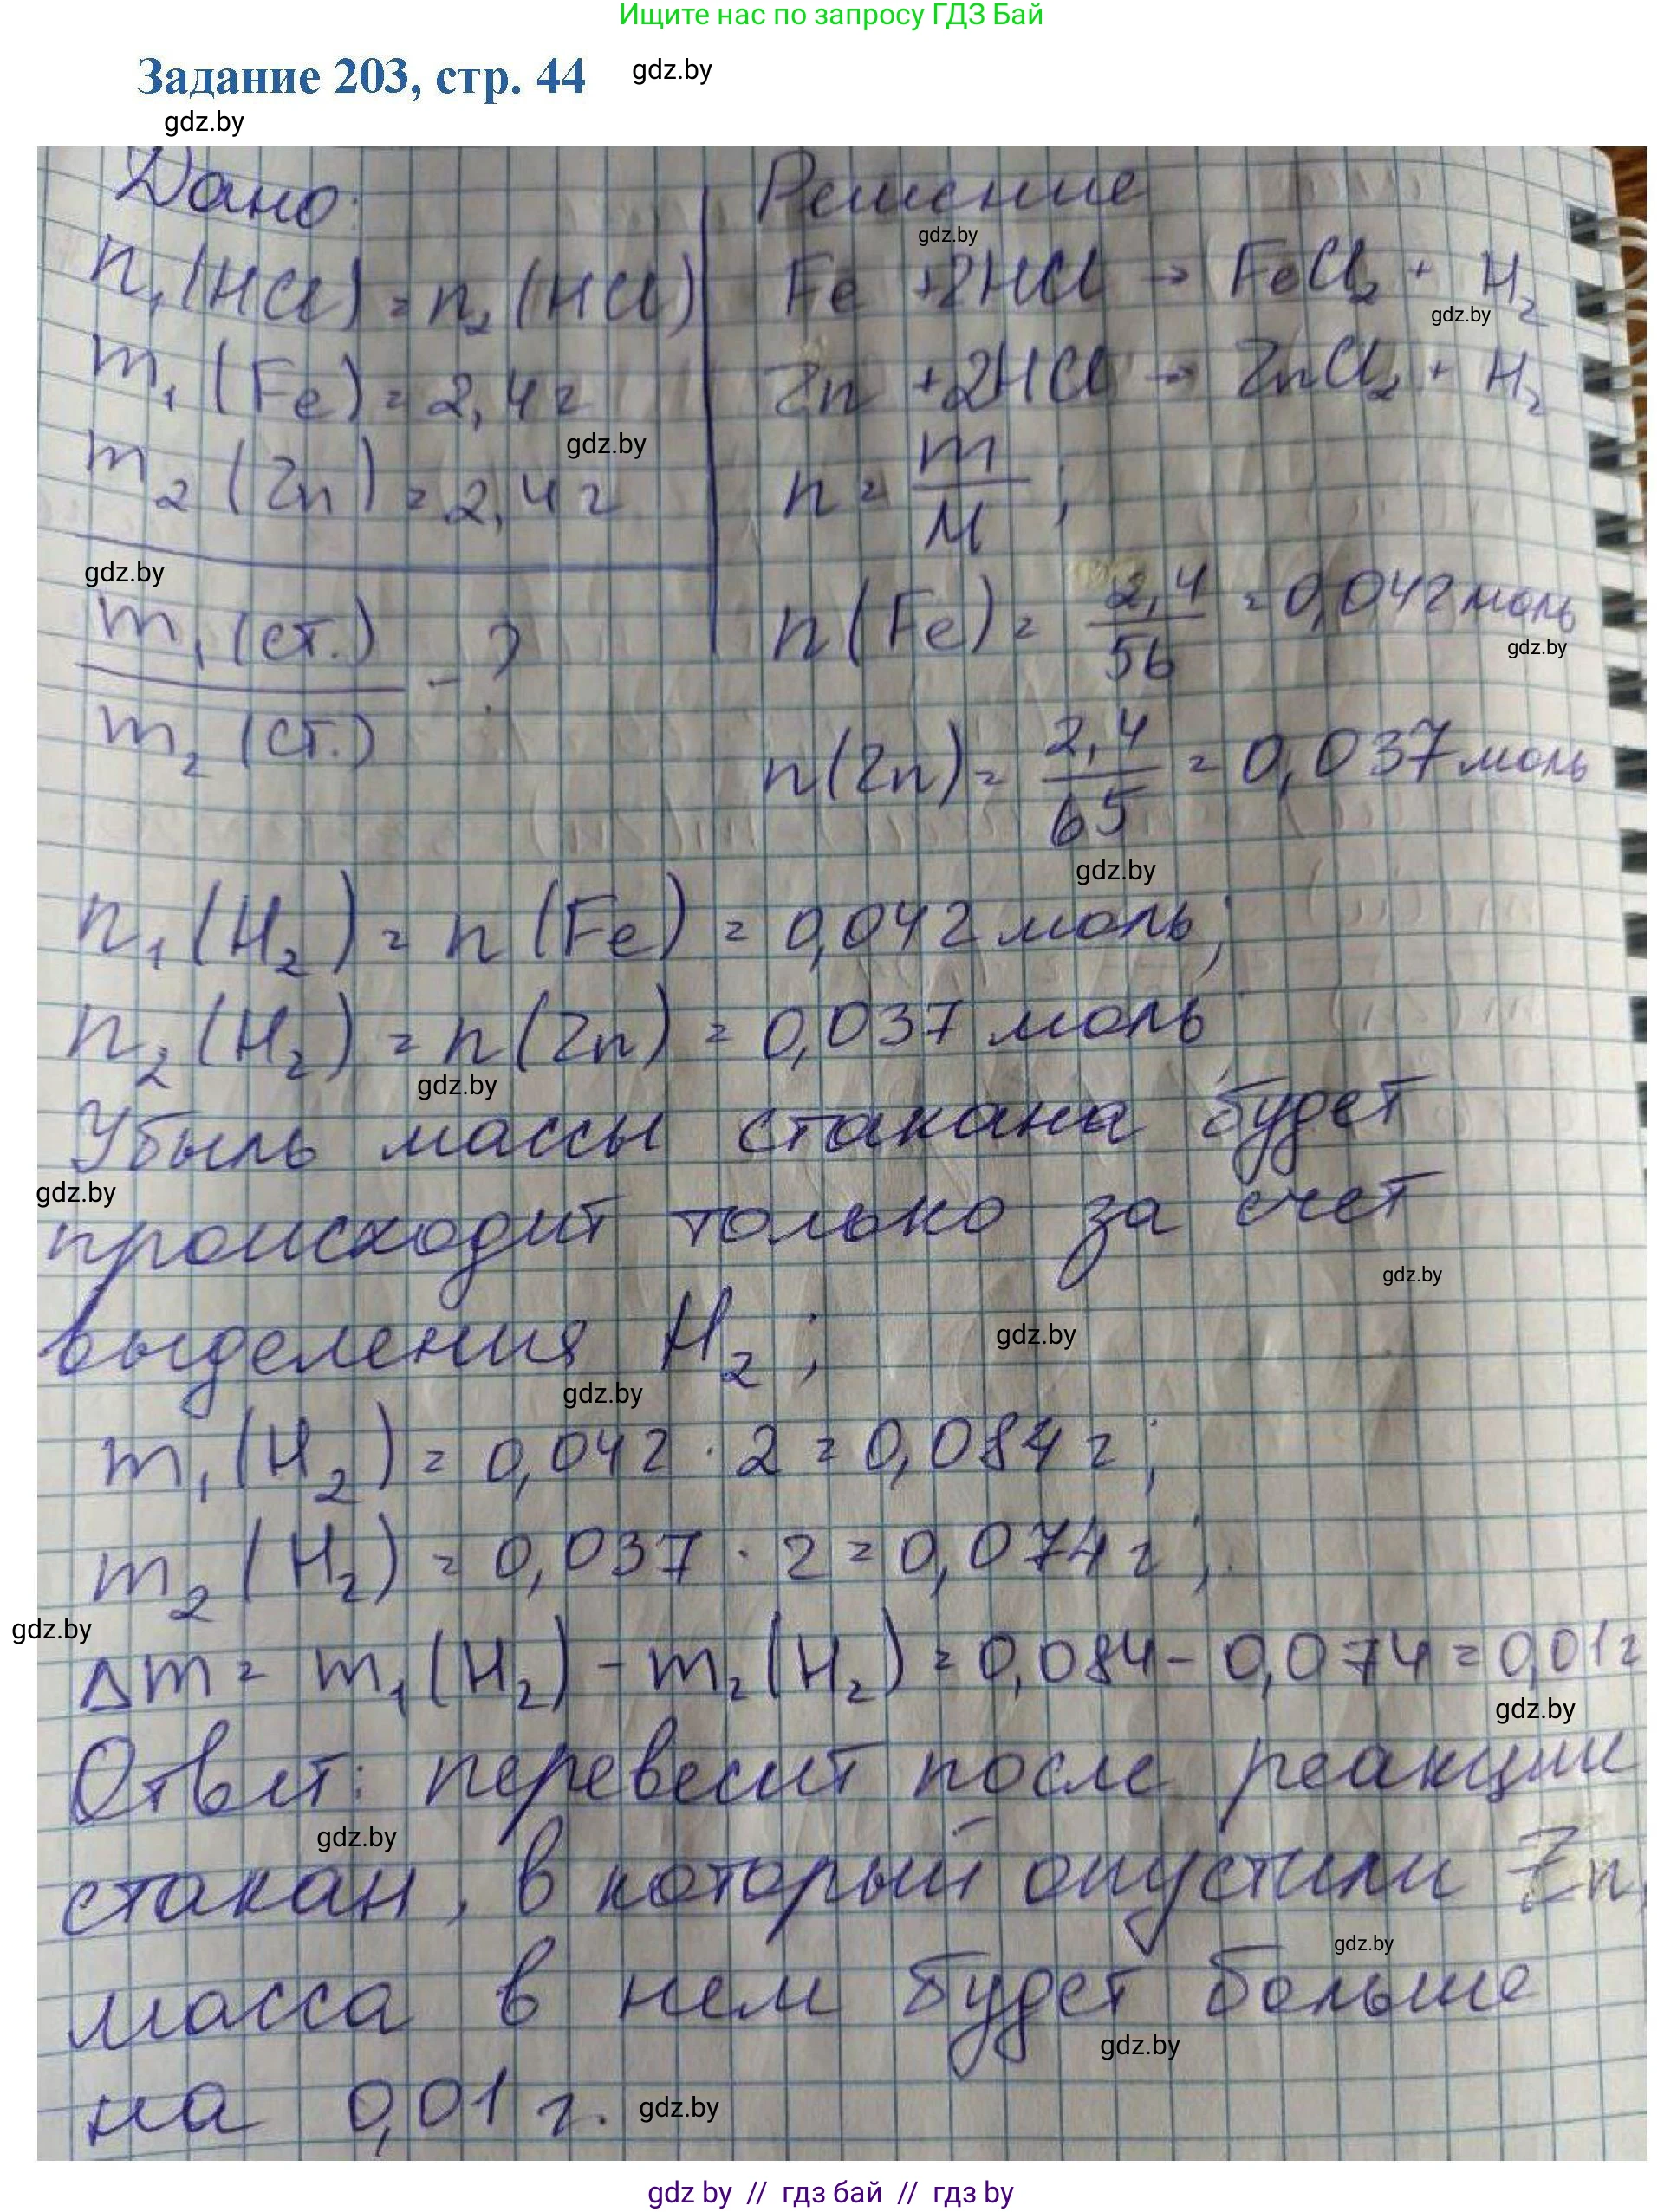 Ищите нас по запросу ГДЗ Бай
Задание 203, стр. 44
gdz.by
gdz.by
Дано:
n₁(HCl) = n₂(HCl)
m₁(Fe) = 2,4 г
m₂(Zn) = 2,4 г
gdz.by
gdz.by
m₁(ст.)
m₂(ст.)
- ?
Решение
gdz.by
Fe + 2HCl → FeCl₂ + H₂
gdz.by
Zn + 2HCl → ZnCl₂ + H₂
n = m/M ;
n(Fe) = 2,4/56 = 0,042 моль
gdz.by
n(Zn) = 2,4/65 = 0,037 моль
gdz.by
n₁(H₂) = n(Fe) = 0,042 моль;
n₂(H₂) = n(Zn) = 0,037 моль
gdz.by
Убыль массы стакана будет
gdz.by
происходит только за счет
gdz.by
выделения H₂ ;
gdz.by
gdz.by
m₁(H₂) = 0,042 · 2 = 0,084 г ;
m₂(H₂) = 0,037 · 2 = 0,074 г ;
gdz.by
Δm = m₁(H₂) - m₂(H₂) = 0,084 - 0,074 = 0,01 г
gdz.by
Ответ: перевесит после реакции
gdz.by
стакан, в который опустили Zn,
gdz.by
масса в нем будет больше
gdz.by
на 0,01 г.
gdz.by
gdz by // гдз бай // гдз by